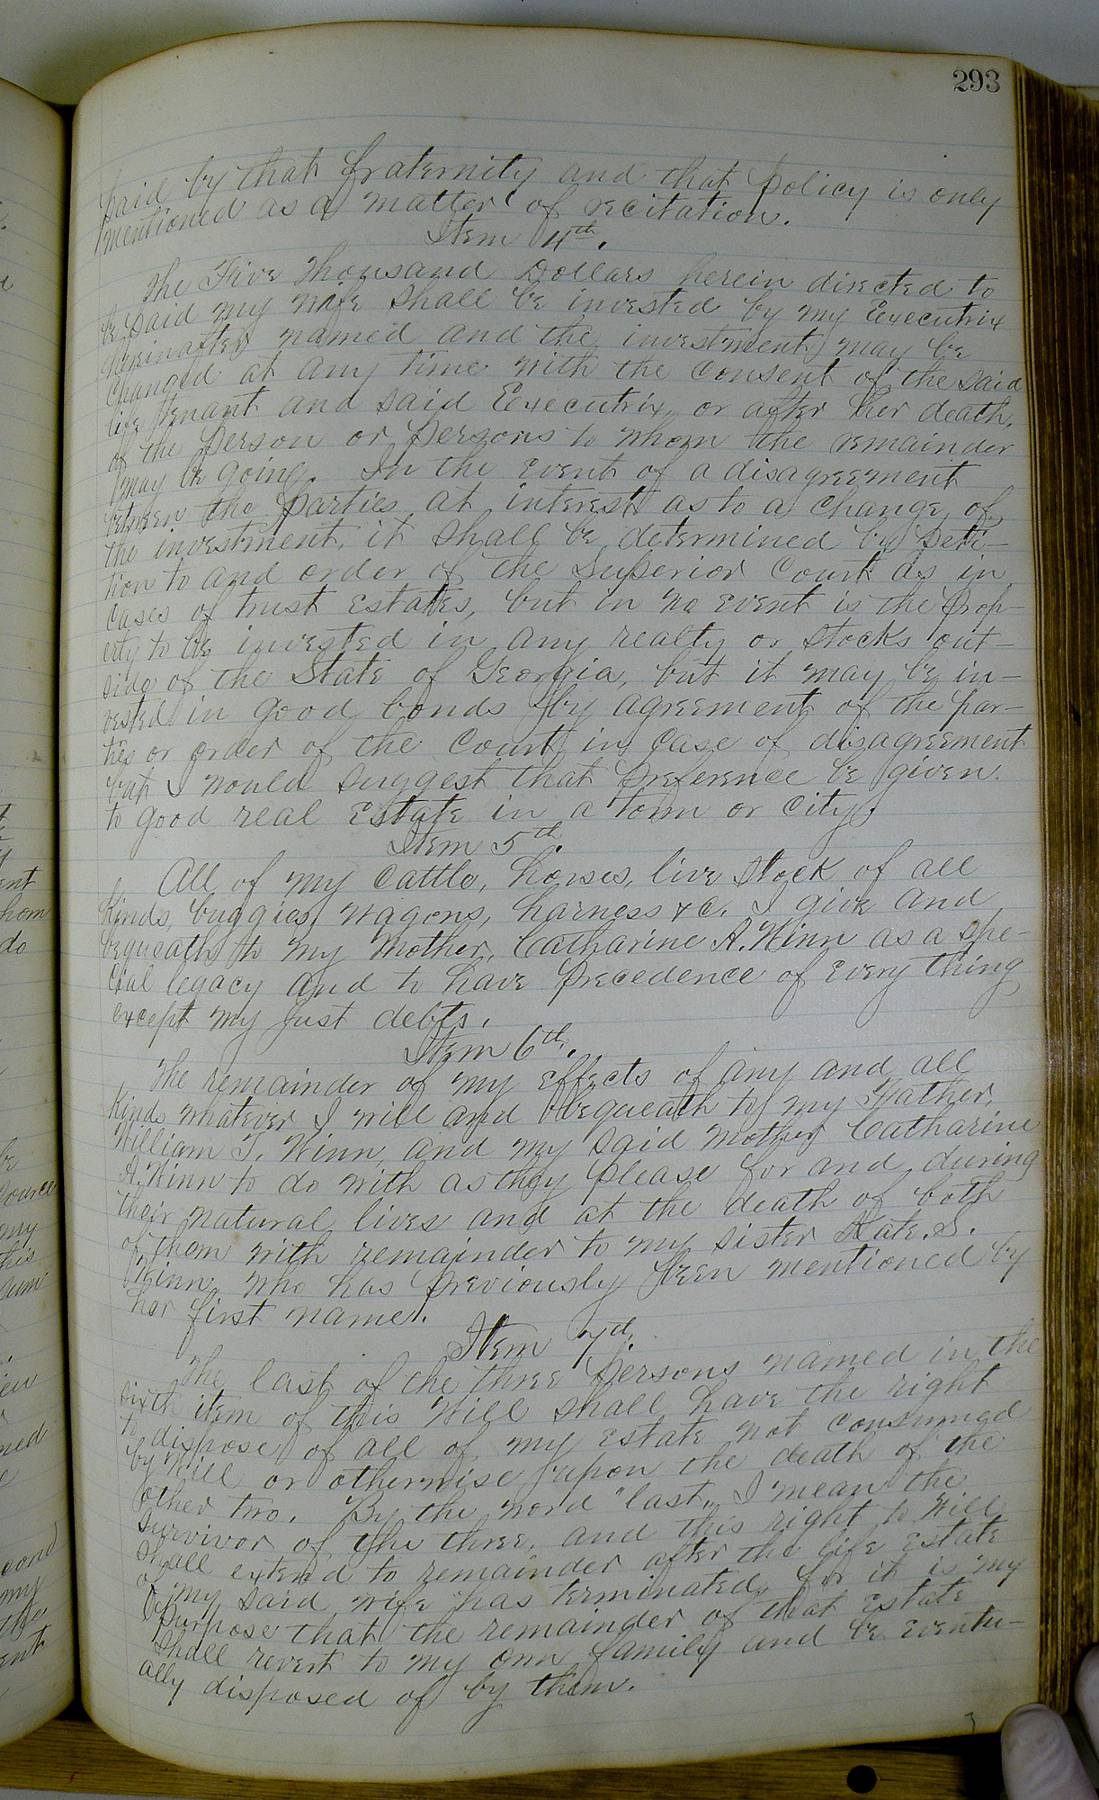 293
paid by that fraternity and that policy is only
mentioned as a matter of recitation.
Item 4th.
The Five Thousand Dollars herein directed to
be paid my wife shall be invested by my Executrix
hereinafter named and the investment may be
changed at any time with the consent of the said
life tenant and said Executrix, or after her death,
of the person or persons to whom the remainder
may be going. In the event of a disagreement
between the parties at interest as to a change of
the investment, it shall be determined by peti-
tion to and order of the Superior Court as in
cases of trust estates, but in no event is the prop-
erty to be invested in any realty or stocks out-
side of the State of Georgia, but it may be in-
vested in good bonds by agreement of the par-
ties or order of the Court in case of disagreement
but I would suggest that preference be given
to good real estate in a town or city.
Item 5th.
All of my cattle, horses, live stock of all
kinds, buggies, wagons, harness &c. I give and
bequeath to my mother, Catharine A. Winn as a spe-
cial legacy and to have precedence of every thing
except my just debts.
Item 6th.
The remainder of my effects of any and all
kinds whatever I will and bequeath to my Father,
William T. Winn, and my said mother Catharine
A. Winn to do with as they please for and during
their natural lives and at the death of both
of them with remainder to my sister Kate. S.
Winn, who has previously been mentioned by
her first name.
Item 7th.
The last of the three persons named in the
sixth item of this will shall have the right
to dispose of all of my estate not consumed
by will or otherwise upon the death of the
other two. By the word "last" I mean the
survivor of the three, and this right to will
shall extend to remainder after the life estate
of my said wife has terminated, for it is my
purpose that the remainder of that estate
shall revert to my own family and be eventu-
ally disposed of by them.